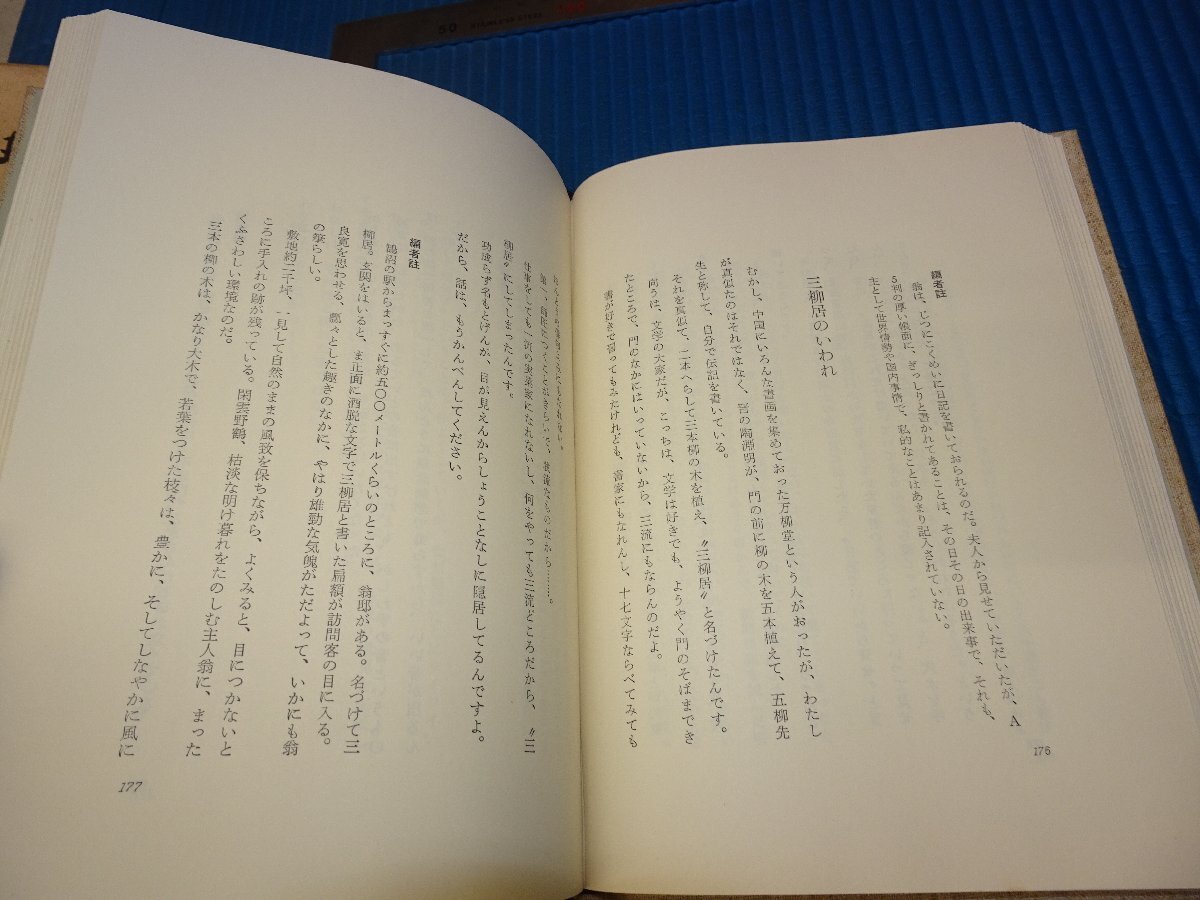 編者註
翁は、じつにこくめいに日記を書いておられるのだ。夫人から見せていただいたが、A
5判の厚い帳面に、ぎっしりと書かれてあることは、その日その日の出来事で、それも、
主として世界情勢や国内事情で、私的なことはあまり記入されていない。
三柳居のいわれ
むかし、中国にいろんな書画を集めておった万柳堂という人がおったが、わたし
が真似たのはそれではなく、晋の陶淵明が、門の前に柳の木を五本植えて、五柳先
生と称して、自分で伝記を書いている。
それを真似て、二本へらして三本柳の木を植え、〝三柳居〟と名づけたんです。
向うは、文学の大家だが、こっちは、文学は好きでも、ようやく門のそばまでき
たところで、門のなかにはいっていないから、三流にもならんのだよ。
書が好きで習ってもみたけれども、書家にもなれんし、十七文字ならべてみても
仕事をしても一流の実業家になれないし、何をやっても三流どころだから、〝三
柳居〟にしてしまったんです。
功成らず名もとげんが、目が見えんからしょうことなしに隠居してるんですよ。
だから、話は、もうかんべんしてください。
編者註
鵠沼の駅からまっすぐに約五〇〇メートルくらいのところに、翁邸がある。名づけて三
柳居。玄関をはいると、ま正面に洒脱な文字で三柳居と書いた扁額が訪問客の目に入る。
良寛を思わせる、飄々とした趣きのなかに、やはり雄勁な気魄がただよって、いかにも翁
の筆らしい。
敷地約二千坪、一見して自然のままの風致を保ちながら、よくみると、目につかないと
ころに手入れの跡が残っている。閑雲野鶴、枯淡な明け暮れをたのしむ主人翁に、まった
くふさわしい環境なのだ。
三本の柳の木は、かなり大木で、若葉をつけた枝々は、豊かに、そしてしなやかに風に
176
177
50